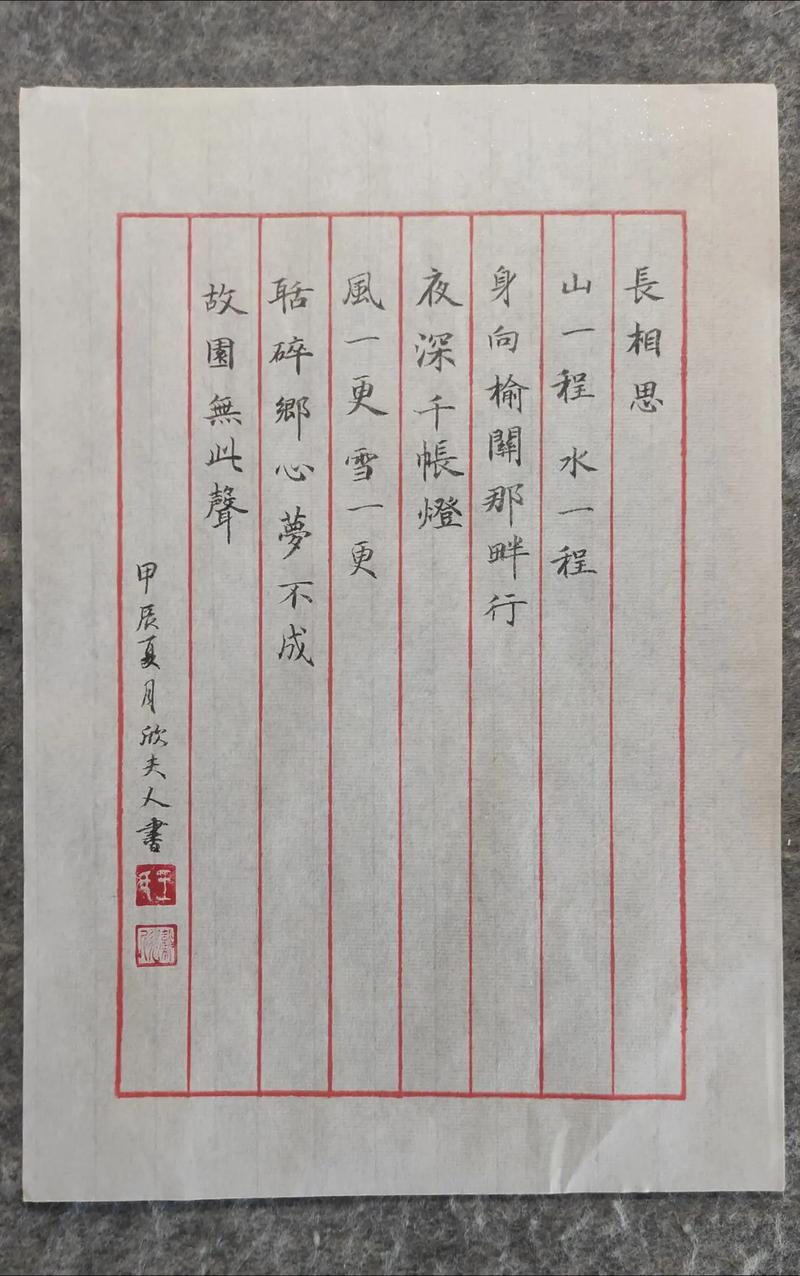 長相思
山一程 水一程
身向榆關那畔行
夜深千帳燈
風一更 雪一更
聒碎鄉心夢不成
故園無此聲
甲辰夏月欣夫人書